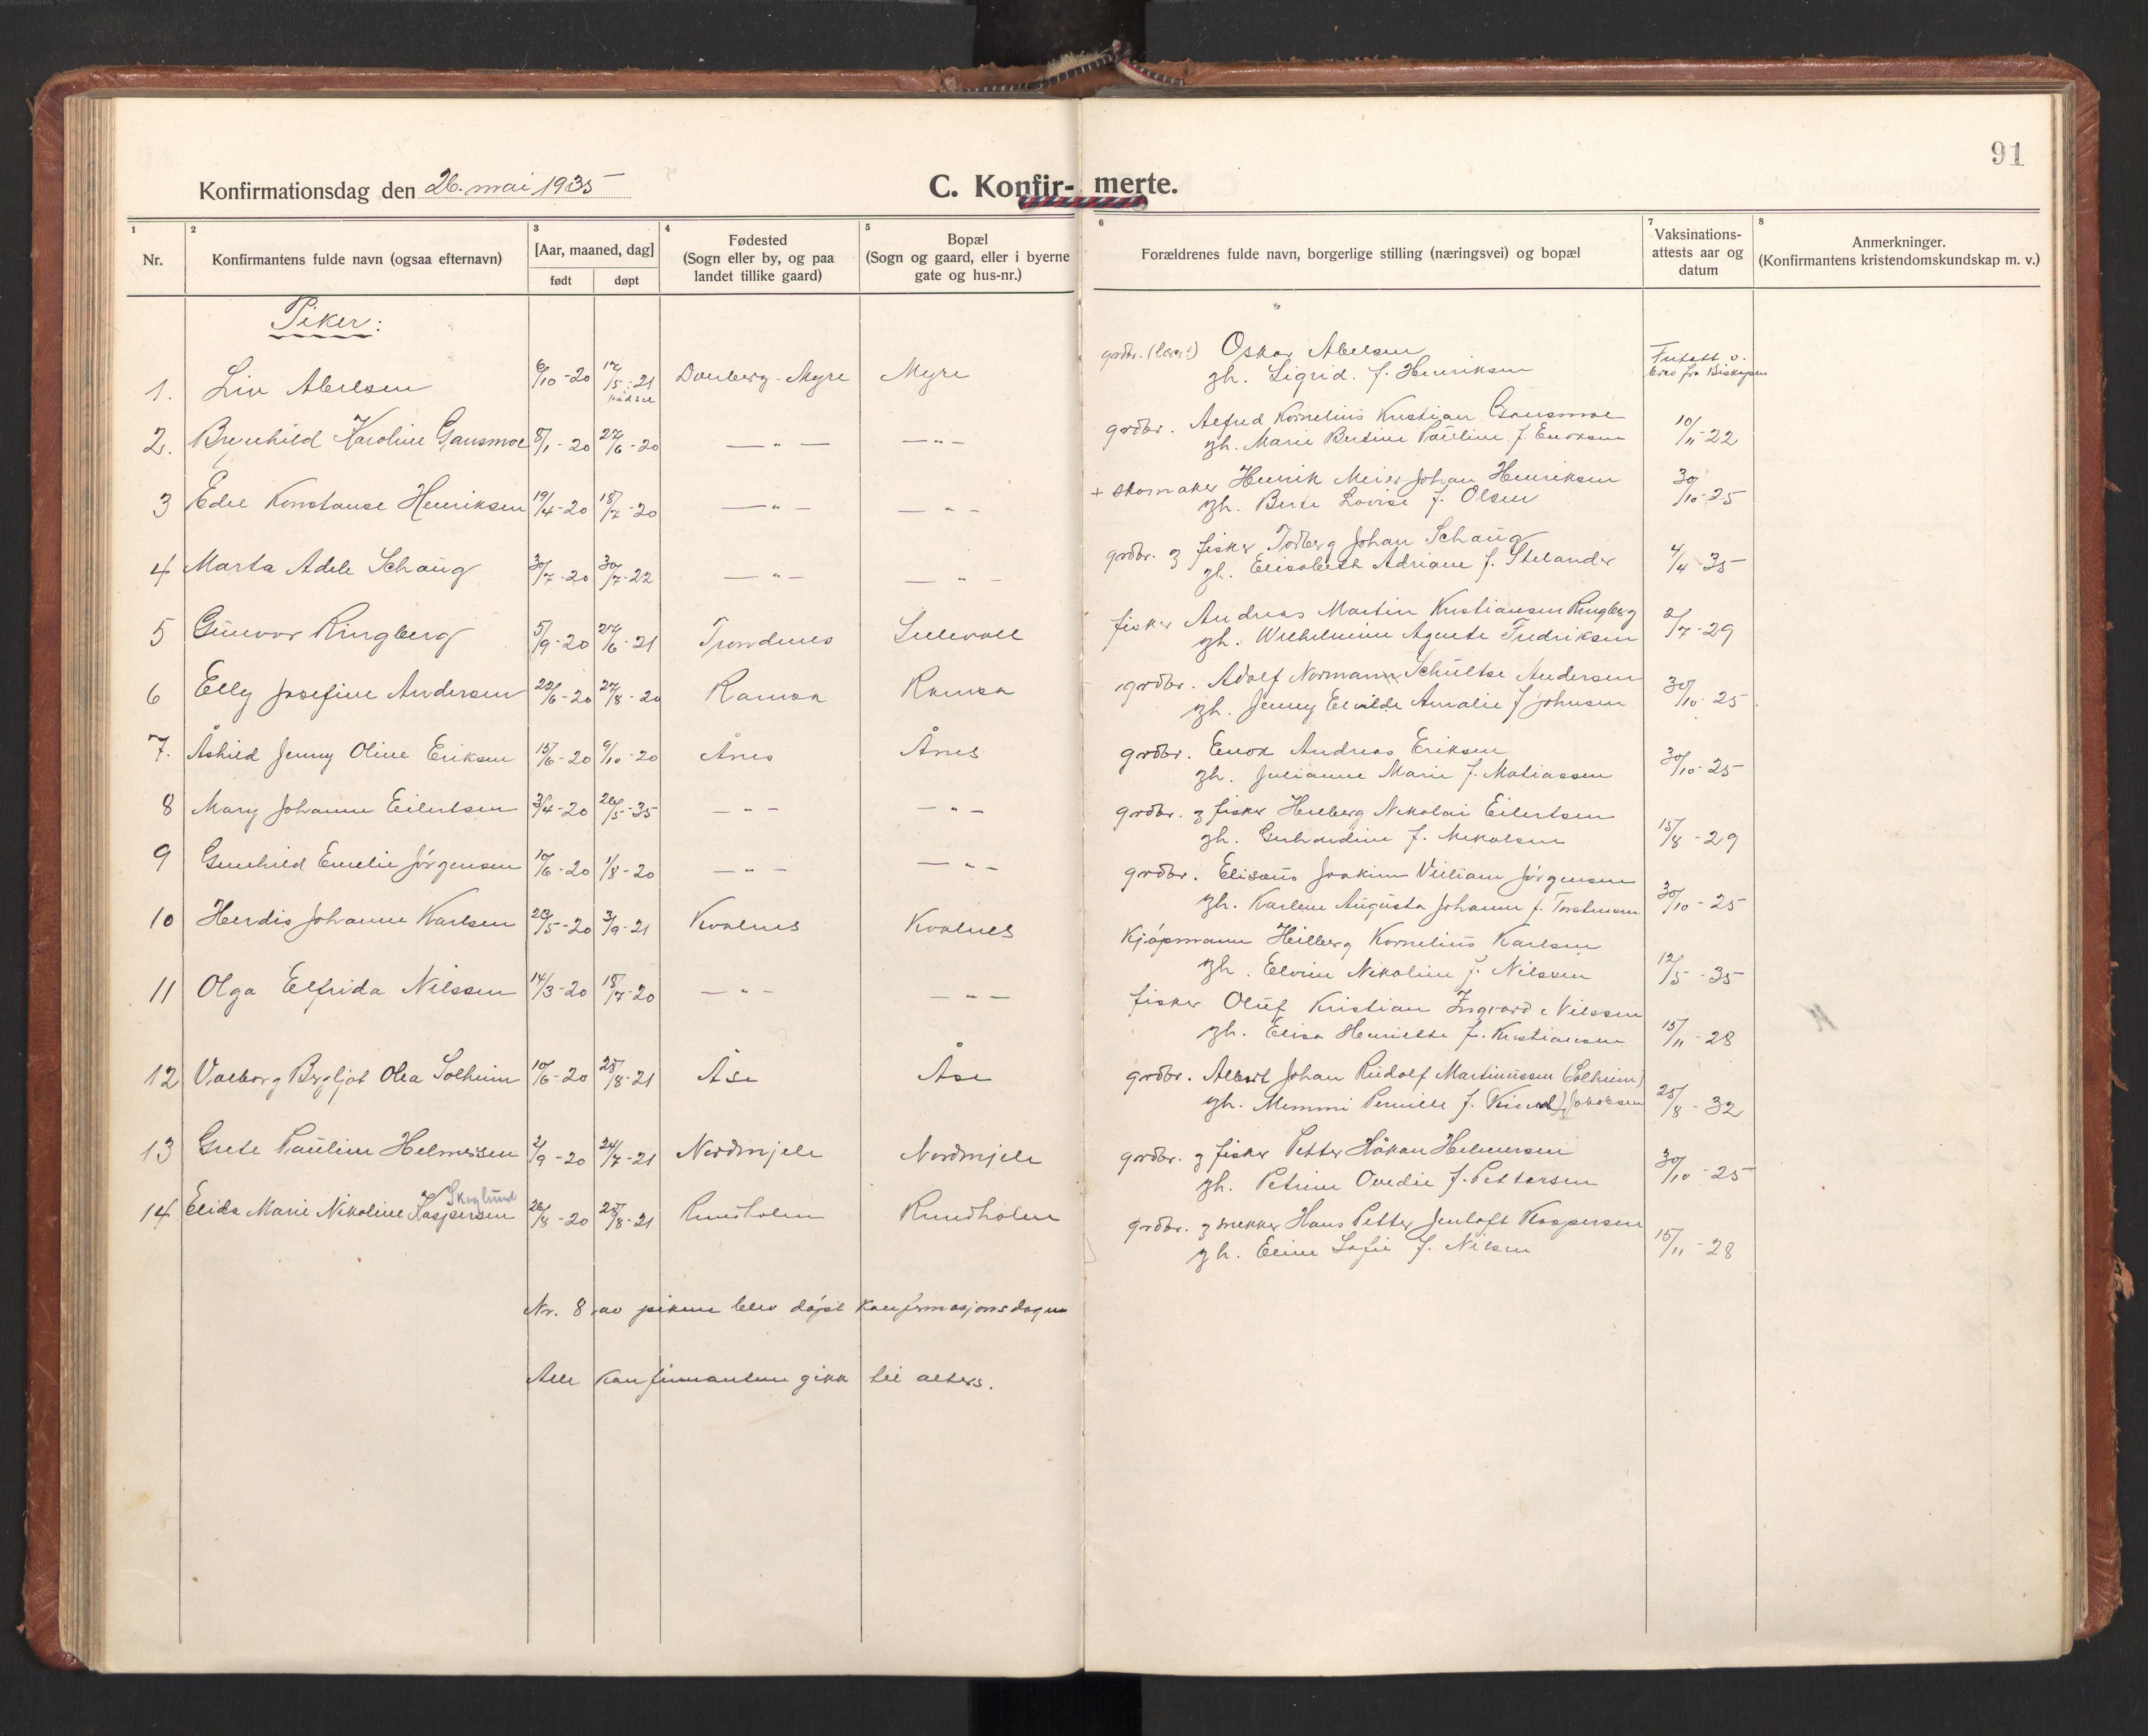 91
Konfirmationsdag den 26. mai 1935
C. Konfir- merte.
1 2 3 4 5 6 7 8
Nr.
Konfirmantens fulde navn (ogsaa efternavn)
[Aar, maaned, dag]
født døpt
Fødested
(Sogn eller by, og paa
landet tillike gaard)
Bopæl
(Sogn og gaard, eller i byerne
gate og hus-nr.)
Forældrenes fulde navn, borgerlige stilling (næringsvei) og bopæl
Vaksinations-
attests aar og
datum
Anmerkninger.
(Konfirmantens kristendomskundskap m. v.)
Piker:
1. Liv Abelsen 6/10-20 17/5-21 Myre Myre
grdbr. Oskar Abelsen
gh. Sigrid. f. Henriksen
fra Biskopen
2. Brynhild Karoline Gausmoe 8/1-20 27/6-20 — " — — " —
grdbr. Alfred Kornelius Kristian Gausmoe
gh. Marie Bertine Pauline f. Enoksen
10/11-22
3 Edel Konstanse Henriksen 19/4-20 18/7-20 — " — — " —
+ skomaker Henrik Meier Johan Henriksen
gh. Berte Lovise f. Olsen
30/10-25
4 Marta Adele Schaug 30/7-20 30/7-22 — " — — " —
grdbr. g fisker Torberg Johan Schaug
gh. Elisabeth Adriane f. Stelander
4/4-35
5 Gunvor Ringberg 5/9-20 27/6-21 Trondenes
fisker Andreas Martin Kristiansen Ringberg
gh. Wilhelmine Agnete Fredriksen
2/7-29
6 Elly Josefine Andersen 22/6-20 27/8-20 Ramsa Ramsa
grdbr. Adolf Normann Schultse Andersen
gh. Jenny Elvilde Amalie f Johnsen
30/10-25
7. Åshild Jenny Oline Eriksen 15/6-20 9/10-20 Ånes Ånes
grdbr. Enok Andreas Eriksen
gh. Julianne Marie f. Matiassen
30/10-25
8 Mary Johanne Eilertsen 3/4-20 26/5-35 — " — — " —
grdbr. g fisker Helberg Nikolai Eilertsen
gh. Gerhardine f. Mikalsen
15/8-29
9 Gunhild Emelie Jørgensen 10/6-20 1/8-20 — " — — " —
grdbr. Elisæus Joakim Viliam Jørgensen
gh. Karlene Augusta Johanne f.
30/10-25
10 Herdis Johanne Karlsen 23/5-20 3/9-21 Kvalnes Kvalnes
Kjøpmann Hilberg Kornelius Karlsen
gh. Elvine Nikoline f. Nilssen
12/5-35
11 Olga Elfrida Nilssen 14/3-20 18/7-20 — " — — " —
fisker Oluf Kristian Ingvard Nilssen
gh. Elisa Henriette f. Kristiansen
15/11-28
12 Valborg Bergljot Olea Solheim 10/6-20 28/8-21 Åse Åse
grdbr. Albert Johan Rudolf Martinussen (Solheim)
gh. Memmi Pernille f. Jakobsen
25/8-32
13 Grete Pauline Helmersen 2/9-20 24/7-21 Nordmjele Nordmjele
grdbr. g fisker Petter Håkan Helmersen
gh. Petrine Ovedie f. Pettersen
30/10-25
Skoglund
14 Elida Marie Nikoline Kaspersen 26/8-20 28/8-21 Rundholen Rundholen
grdbr. g snekker Hans Petter Jentoft Kaspersen
gh. Eline Sofie f. Nilsen
15/11-28
Nr. 8 av pikene blev døpt konfirmasjonsdagen
Alle konfirmantene gikk til alters.